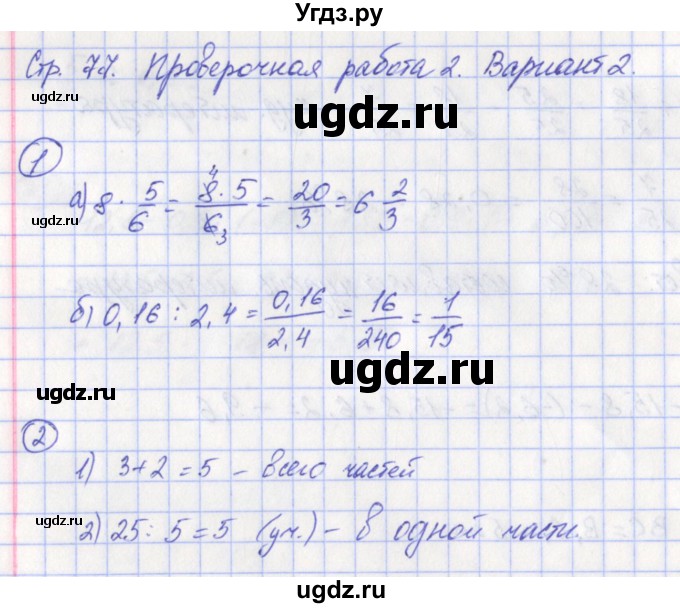 Угдз.ру
Стр. 77. Проверочная работа 2. Вариант 2.
ugdz.ru
ugdz.ru
1
а) 8 · 5/6 = 8 · 5/6 = 20/3 = 6 2/3
4
3
б) 0,16 : 2,4 = 0,16/2,4 = 16/240 = 1/15
ugdz.ru
ugdz.ru
2
1) 3+2 = 5 – всего частей
2) 25 : 5 = 5 (уч.) – в одной части.
ugdz.ru
ugdz.ru
ugdz.ru